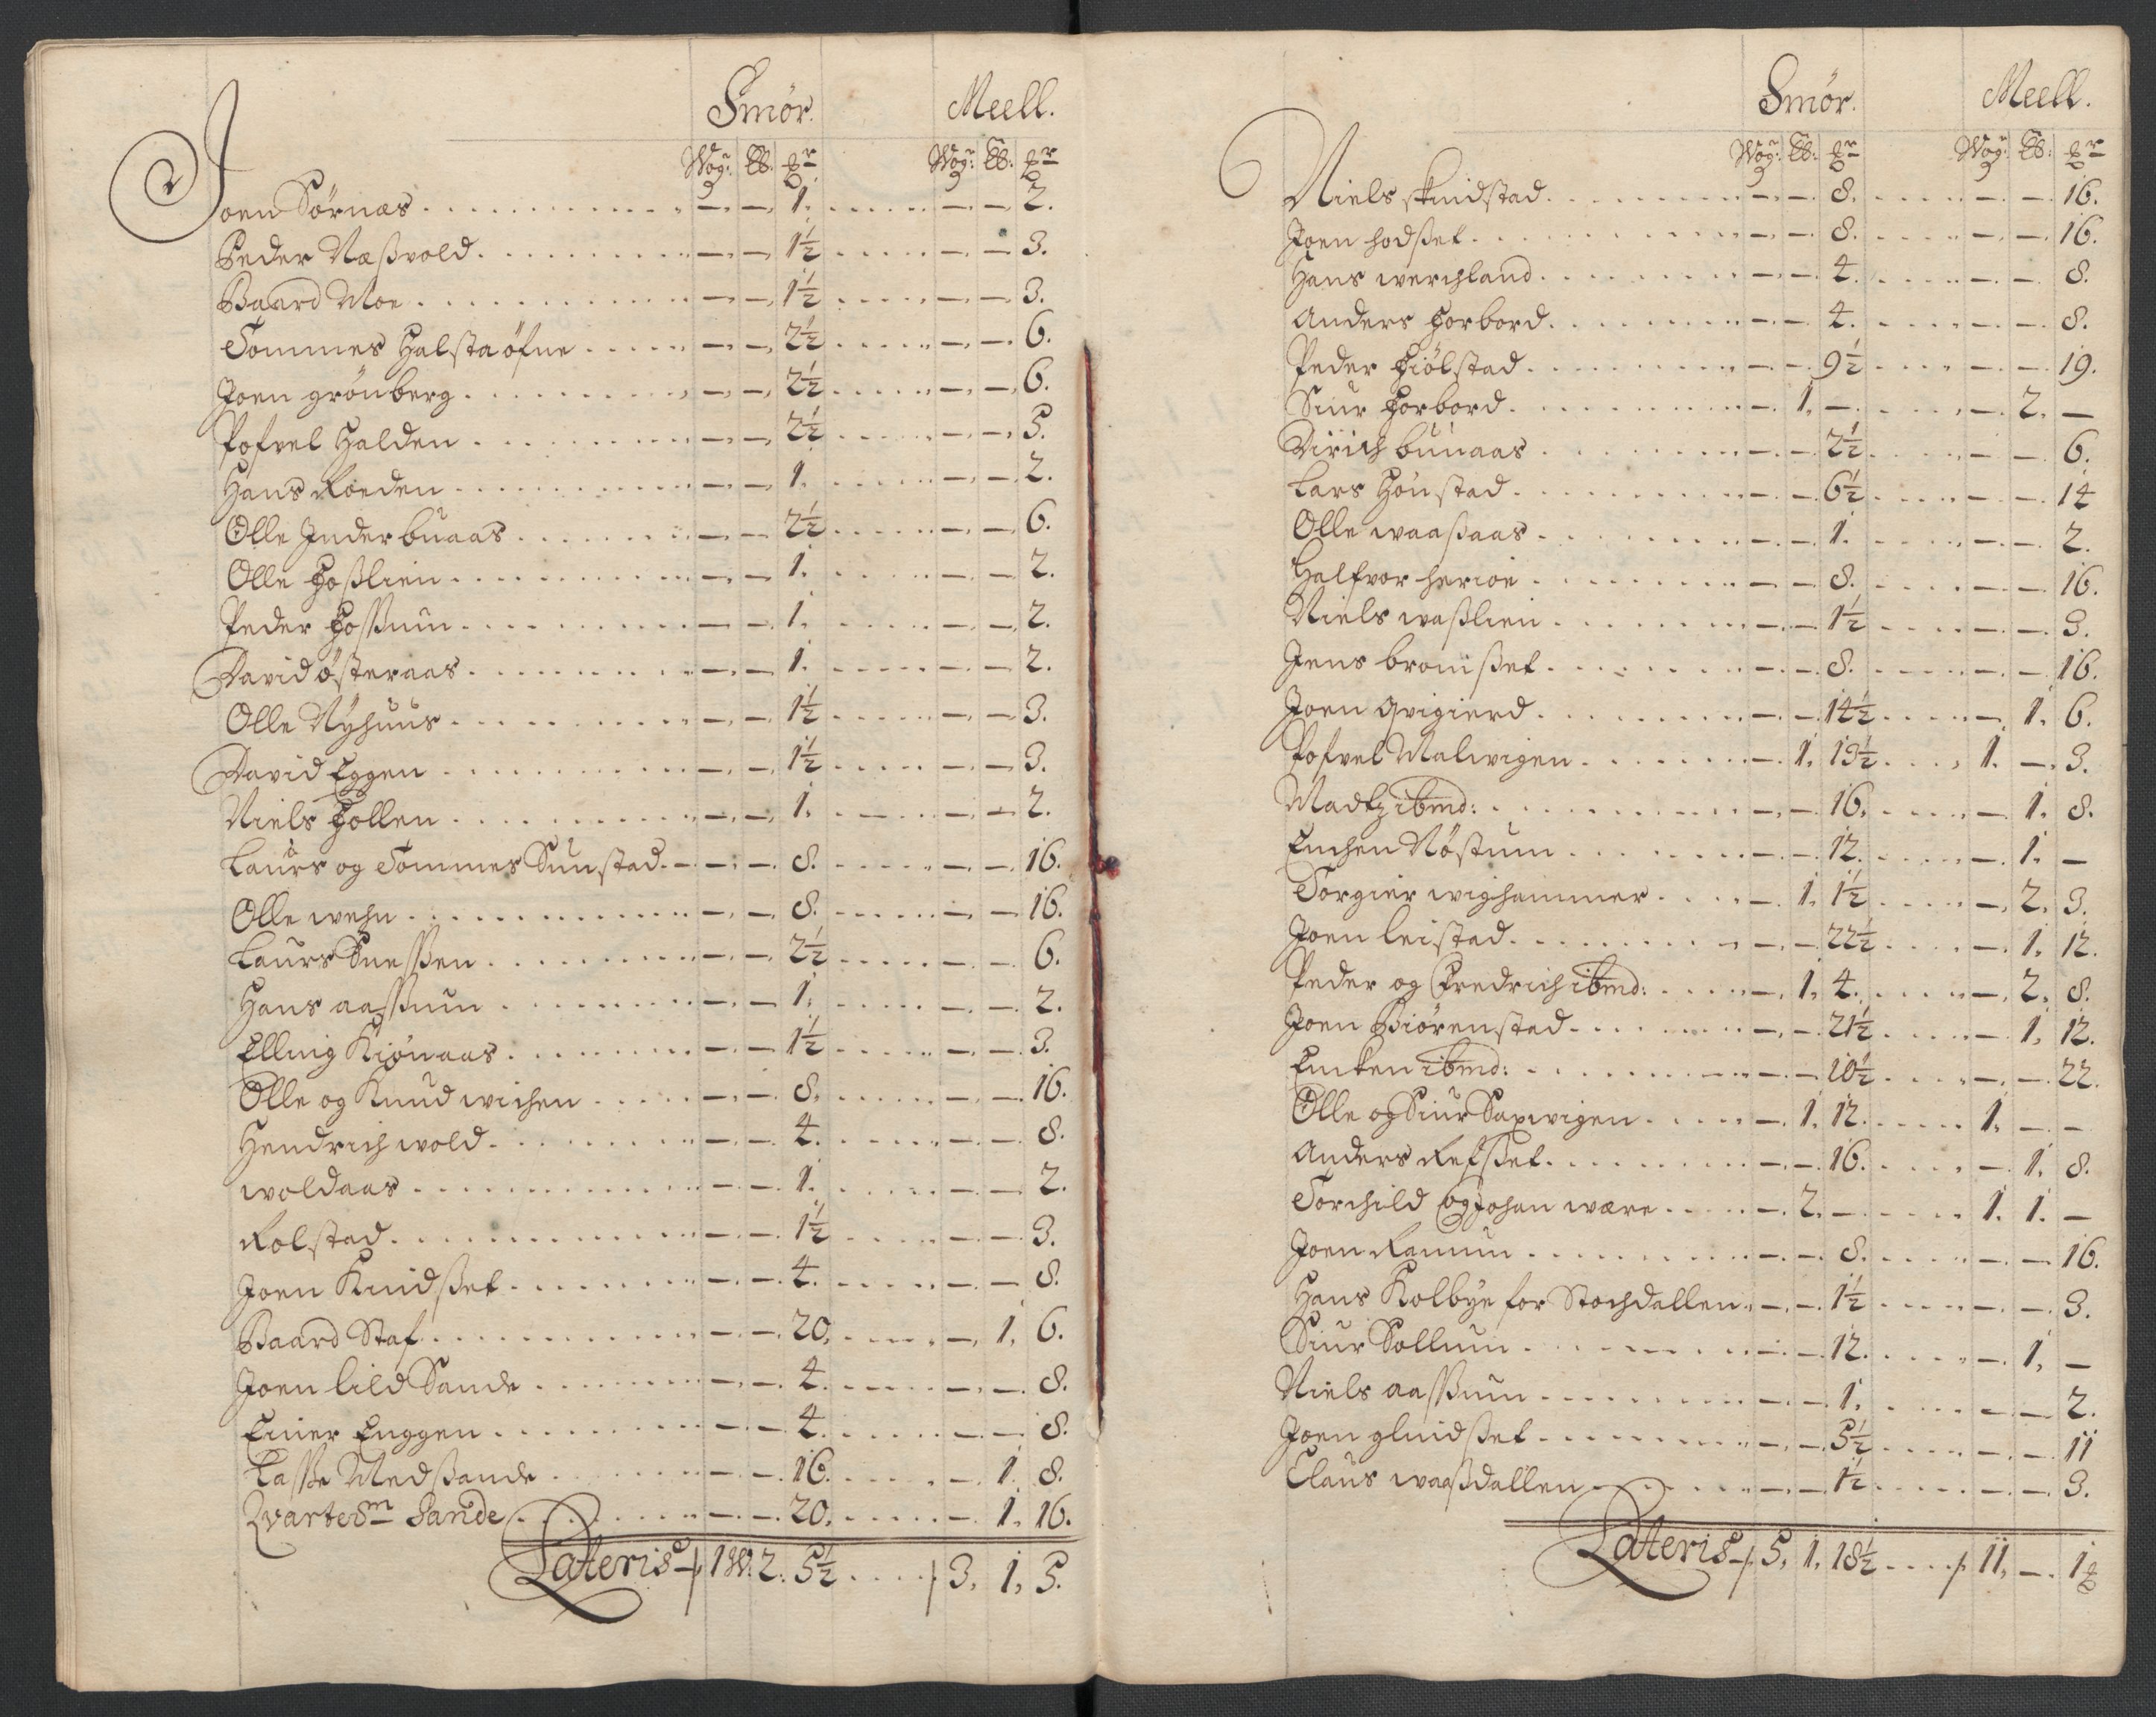 Smör. Meell.
Wog: ℔: ꝑr Wog: ℔: ꝑr
Joen Sörnæs - - 1. - - 2.
Peder Næßvold - - 1½ - - 3.
Baard Moe - - 1½ - - 3.
Tommes Halstaöfne - - 2½ - - 6.
Joen grönberg - - 2½ - - 6.
Pofvel Halden - - 2½ - - 5.
Hans Roeden - - 1. - - 2.
Olle Inderbuaas - - 2½ - - 6.
Olle Hoßlien - - 1. - - 2.
Peder Foßum - - 1. - - 2.
David österaas - - 1. - - 2.
Olle Nyhuus - - 1½ - - 3.
David Eggen - - 1½ - - 3.
Niels Hollen - - 1. - - 2.
Laurs og Tommes Sunstad - - 8. - - 16.
Olle wehn - - 8. - - 16.
Laurs Sneßen - - 2½ - - 6.
Hans aaßum - - 1. - - 2.
Elling Kiönaas - - 1½ - - 3.
Olle og Knud wichen - - 8. - - 16.
Hendrich wold - - 4. - - 8.
woldaas - - 1. - - 2.
Rolstad - - 1½ - - 3.
Joen Kindßet - - 4. - - 8.
Baard Staf - - 20. - 1. 6.
Joen lild Sande - - 4. - - 8.
Einer Enggen - - 4. - - 8.
Lasse Medßande - - 16. - 1. 8.
Qvarterm Sande - - 20. - 1. 16.
Lateris 1 W. 2. 5½ 3. 1. 5.
Smör. Meell.
Wog: ℔: ꝑr Wog: ℔: ꝑr
Niels skindstad - - 8. - - 16.
Joen hodßet - - 8. - - 16.
Hans werchland - - 4. - - 8.
Anders Forbord - - 4. - - 8.
Peder Fiölstad - - 9½ - - 19.
Siur Forbord - 1. - - 2. -
Dirich buuaas - - 2½ - - 6.
Lars Hönstad - - 6½ - - 14
Olle waaßaas - - 1. - - 2.
Halfvor herioe - - 8. - - 16.
Niels waßlien - - 1½ - - 3.
Jens bromßet - - 8. - - 16.
Joen qvigierd - - 14½ - 1. 6.
Pofvel Malwigen - 1. 13½ 1. - 3.
Madtz ibmd: - - 16. - 1. 8.
Enchen Nöstum - - 12. - 1. -
Torgier wighammer - 1. 1½ - 2. 3.
Joen leistad - - 22½ - 1. 12.
Peder og Fredrich ibmd: - 1. 4. - 2. 8.
Joen Biörenstad - - 21½ - 1. 12.
Encken ibmd: - - 10½ - - 22.
Olle og Siur Saxwigen - 1. 12. 1. - -
Anders Refßet - - 16. - 1. 8.
Torchild og Johan wære - 2. - 1. 1. -
Joen Ramum - - 8. - - 16.
Hans Kolbye for Stochdallen - - 1½ - - 3.
Siur Sollum - - 12. - 1. -
Niels aaßum - - 1. - - 2.
Joen glindßet - - 5½ - - 11
Claus waaßdallen - - 1½ - - 3.
Lateris 5. 1. 18½ 11. - 1 ꝑ